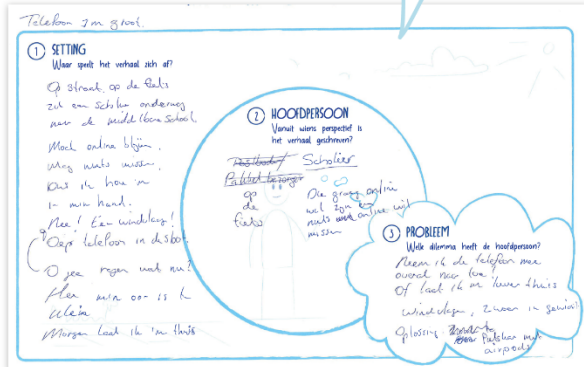 Telefoon 1m groot.
1 SETTING
Waar speelt het verhaal zich af?
Op straat, op de fiets
zit een scholier onderweg
naar de middelbare school
Moet online blijven,
Mag niets missen,
Dus ik hou 'm
in mijn hand.
Nee! Een windvlaag!
Oeps telefoon in de sloot
O jee regen wat nu?
Hee mijn oor is
klein
Morgen laat ik 'm thuis
2 HOOFDPERSOON
Vanuit wiens perspectief is
het verhaal geschreven?
Postbode/
Pakketbezorger
Scholier
op
de
fiets
Die graag online
wil zijn en
niets online wil
missen
3 PROBLEEM
Welk dilemma heeft de hoofdpersoon?
Neem ik de telefoon mee
overal naar toe?
Of laat ik 'm liever thuis
windvlagen, zwaar in gewicht
Oplossing
met
airpods